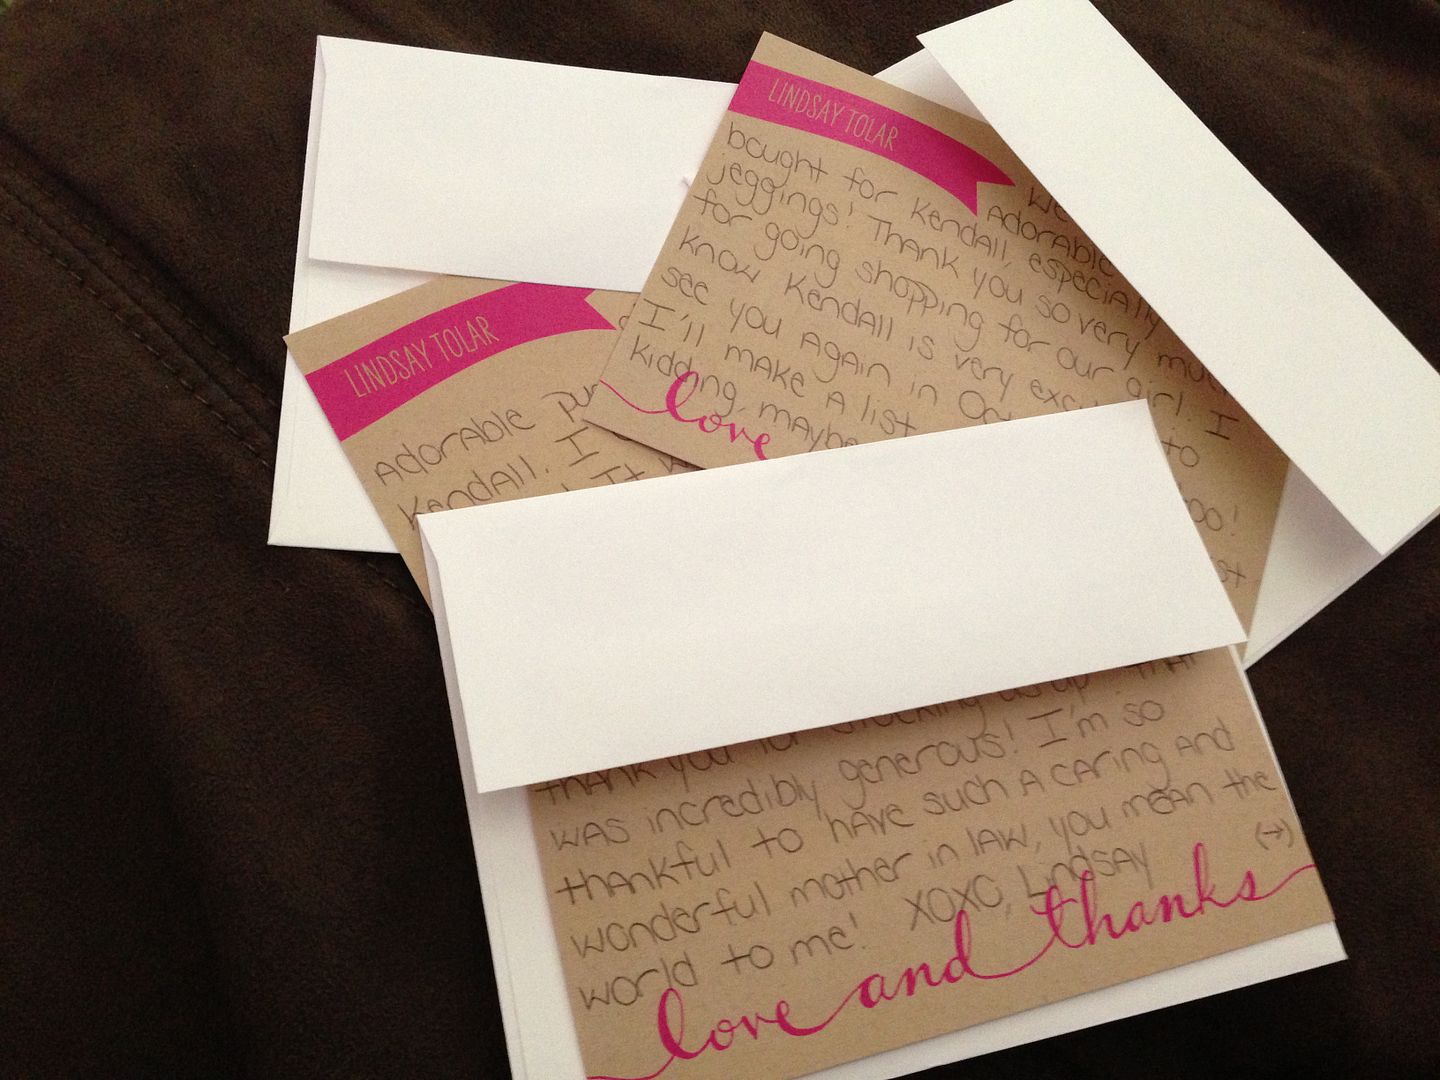 LINDSAY TOLAR
bought for Kendall, especially
jeggings! Thank you so very much
for going shopping for our girl. I
know Kendall is very
see you again in
I'll make a list
kidding, maybe
love
LINDSAY TOLAR
Adorable
Kendall. I
It
thank you for stocking us up - that
was incredibly generous! I'm so
thankful to have such a caring and
wonderful mother in law, you mean the
world to me! XOXO, Lindsay (→)
love and thanks